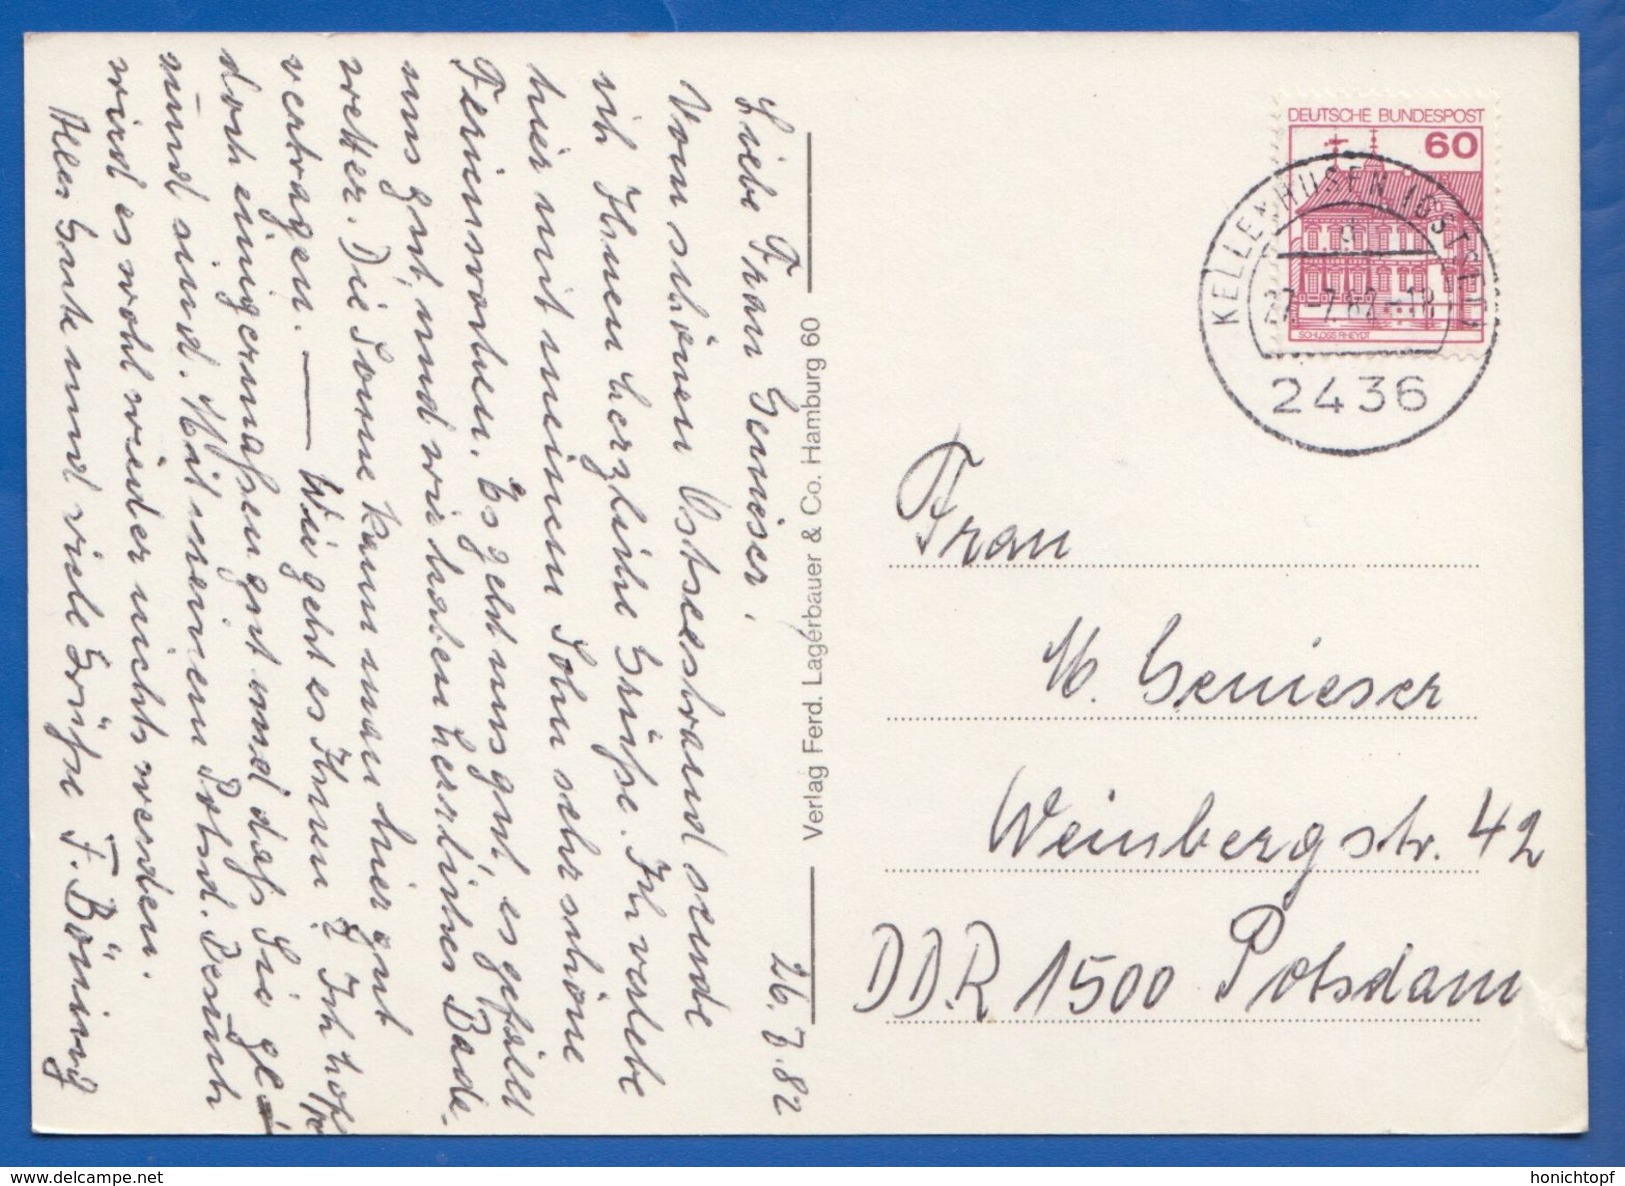 26.7.82
Liebe Frau Genieser,
Vom schönen Ostseestrand sende
ich Ihnen herzliche Grüße. Ich verlebe
hier mit meinem Sohn sehr schöne
Ferienwochen. Es geht uns gut, es gefällt
uns gut, und wir haben herrliches Bade-
wetter. Die Sonne kann man hier gut
vertragen. — Wie geht es Ihnen? Ich hoffe
doch einigermaßen gut und daß Sie ge-
sund sind. Mit meinem Potsd. Besuch
wird es wohl wieder nichts werden.
Alles Gute und viele Grüße F. Böning
Verlag Ferd. Lagerbauer & Co. Hamburg 60
DEUTSCHE BUNDESPOST
60
SCHLOSS RHEYDT
KELLENHUSEN (OSTSEE)
27.-7.82-18
2436
Frau
M. Genieser
Weinbergstr. 42
DDR 1500 Potsdam
delcampe.net
honichtopf